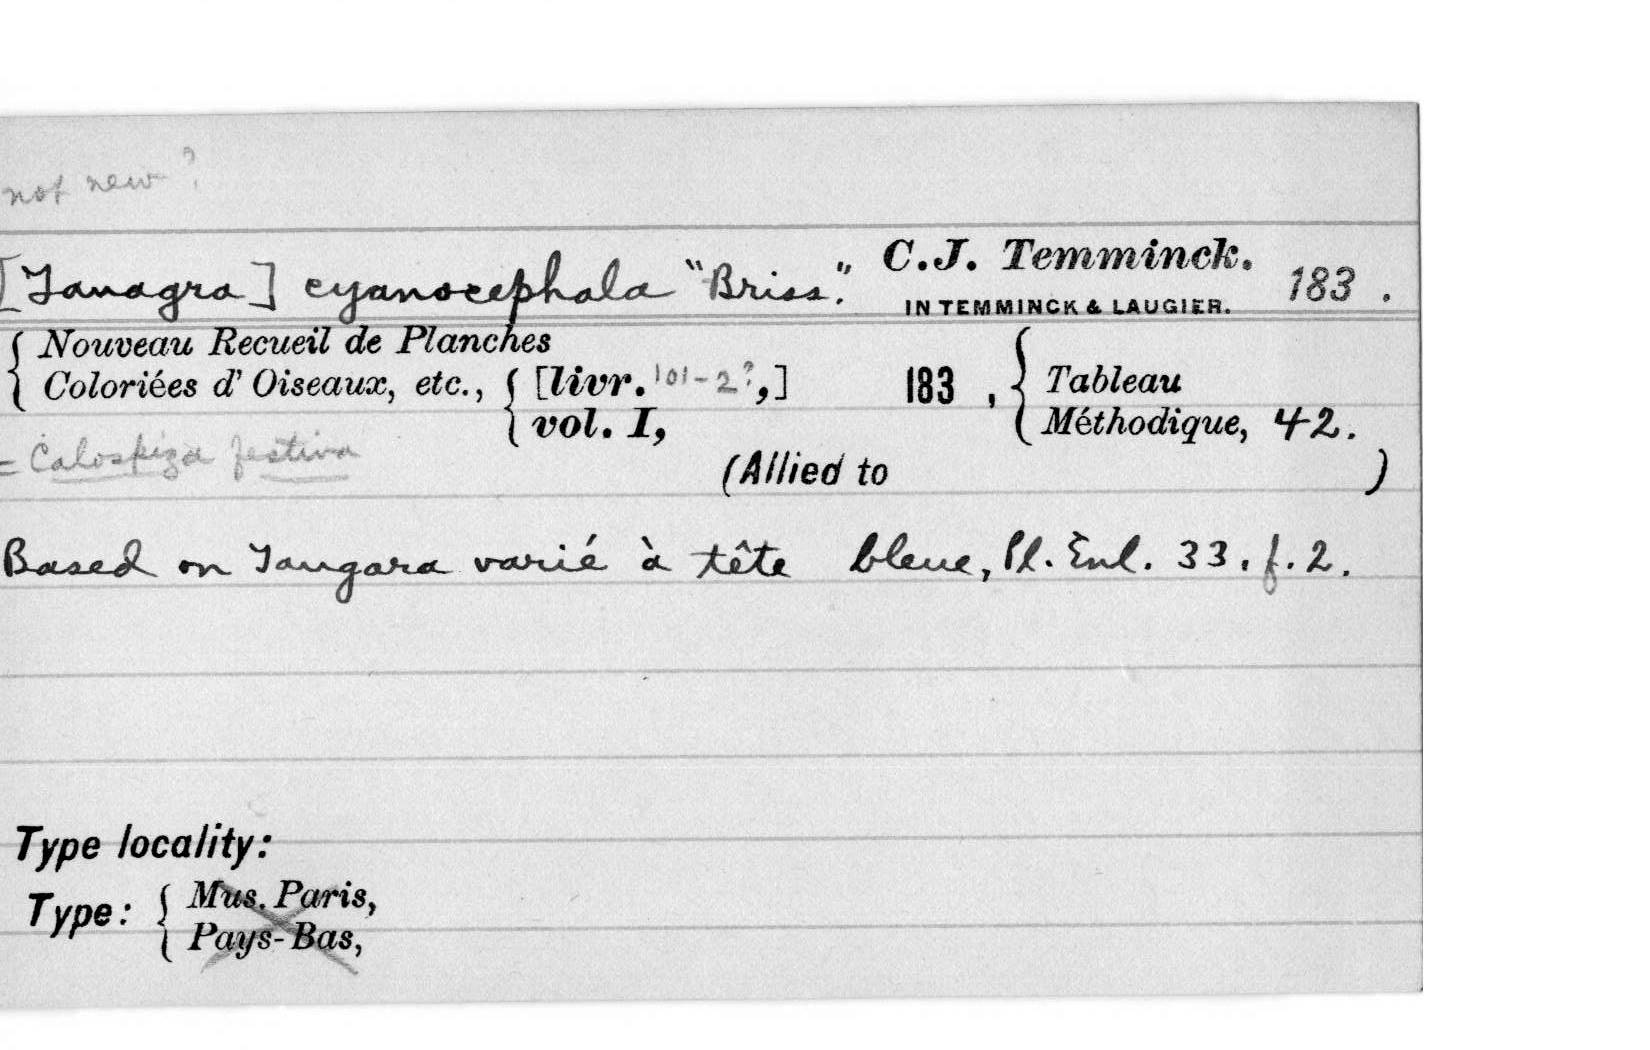 not new?
[Tanagra] cyanocephala "Briss." C.J. Temminck. 183.
IN TEMMINCK & LAUGIER.
Nouveau Recueil de Planches
Coloriées d' Oiseaux, etc., [livr. 101-2?,] 183, Tableau
vol. I, Méthodique, 42.
= Calospiza festiva
(Allied to )
Based on Tangara varié à tête bleue, Pl. Enl. 33. f. 2.
Type locality:
Type: Mus. Paris,
Pays-Bas,